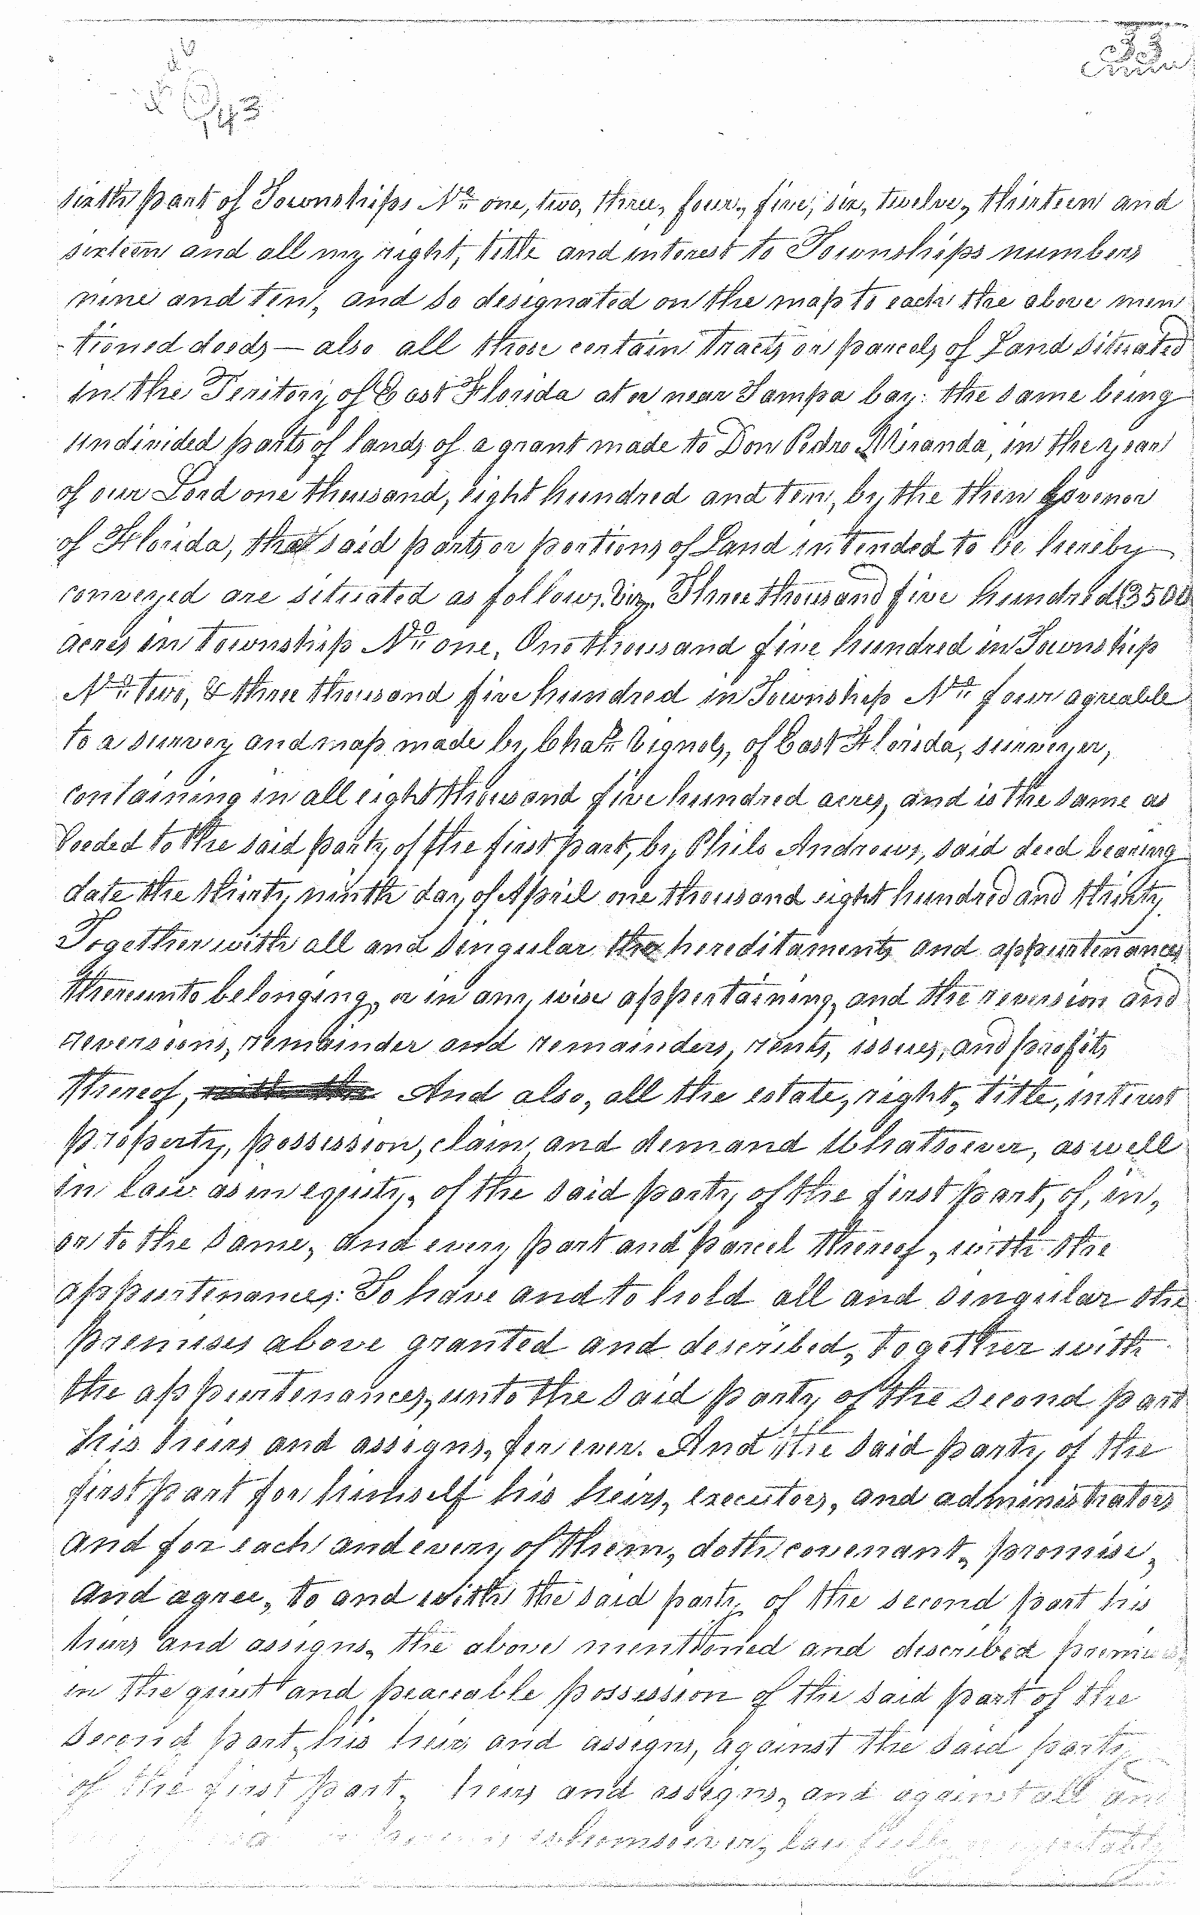 33
143
sixth part of Townships No. one, two, three, four, five, six, twelve, thirteen and
sixteen and all my right, title and interest to Townships numbers
nine and ten, and so designated on the map to each the above men
-tioned deeds — also all those certain tracts or parcels of Land situated
in the Teritory of East Florida at or near Tampa bay: the same being
undivided parts of lands of a grant made to Don Pedro Miranda, in the year
of our Lord one thousand, eight hundred and ten, by the then Govenor
of Florida, the said parts or portions of Land intended to be hereby
conveyed are situated as follows. Viz. Three thousand five hundred (3500
acres in township No. one, One thousand five hundred in Township
No. two, & three thousand five hundred in Township No. four agreable
to a survey and map made by Chas. Vignols, of East Florida, surveyer,
containing in all eight thousand five hundred acres, and is the same as
Deeded to the said party of the first part, by Philo Andrews, said deed bearing
date the thirty ninth day of April one thousand eight hundred and thirty.
Together with all and singular the hereditaments and appurtenances
thereunto belonging, or in any wise appertaining, and the reversion and
reversions, remainder and remainders, rents, issues, and profits
thereof, with the And also, all the estate, right, title, interest
property, possession, claim, and demand Whatsoever, as well
in law as in equity, of the said party of the first part, of, in,
or to the same, and every part and parcel thereof, with the
appurtenances: To have and to hold all and singular the
premises above granted and described, together with
the appurtenances, unto the said party of the second part
his heirs and assigns, for ever. And the said party of the
first part for himself his heirs, executors, and administrators
and for each and every of them, doth covenant, promise,
and agree, to and with the said party of the second part his
heirs and assigns, the above mentioned and described premises
in the quiet and peaceable possession of the said part of the
second part, his heirs and assigns, against the said party
of the first part, heirs and assigns, and against all and
whomsoever, lawfully